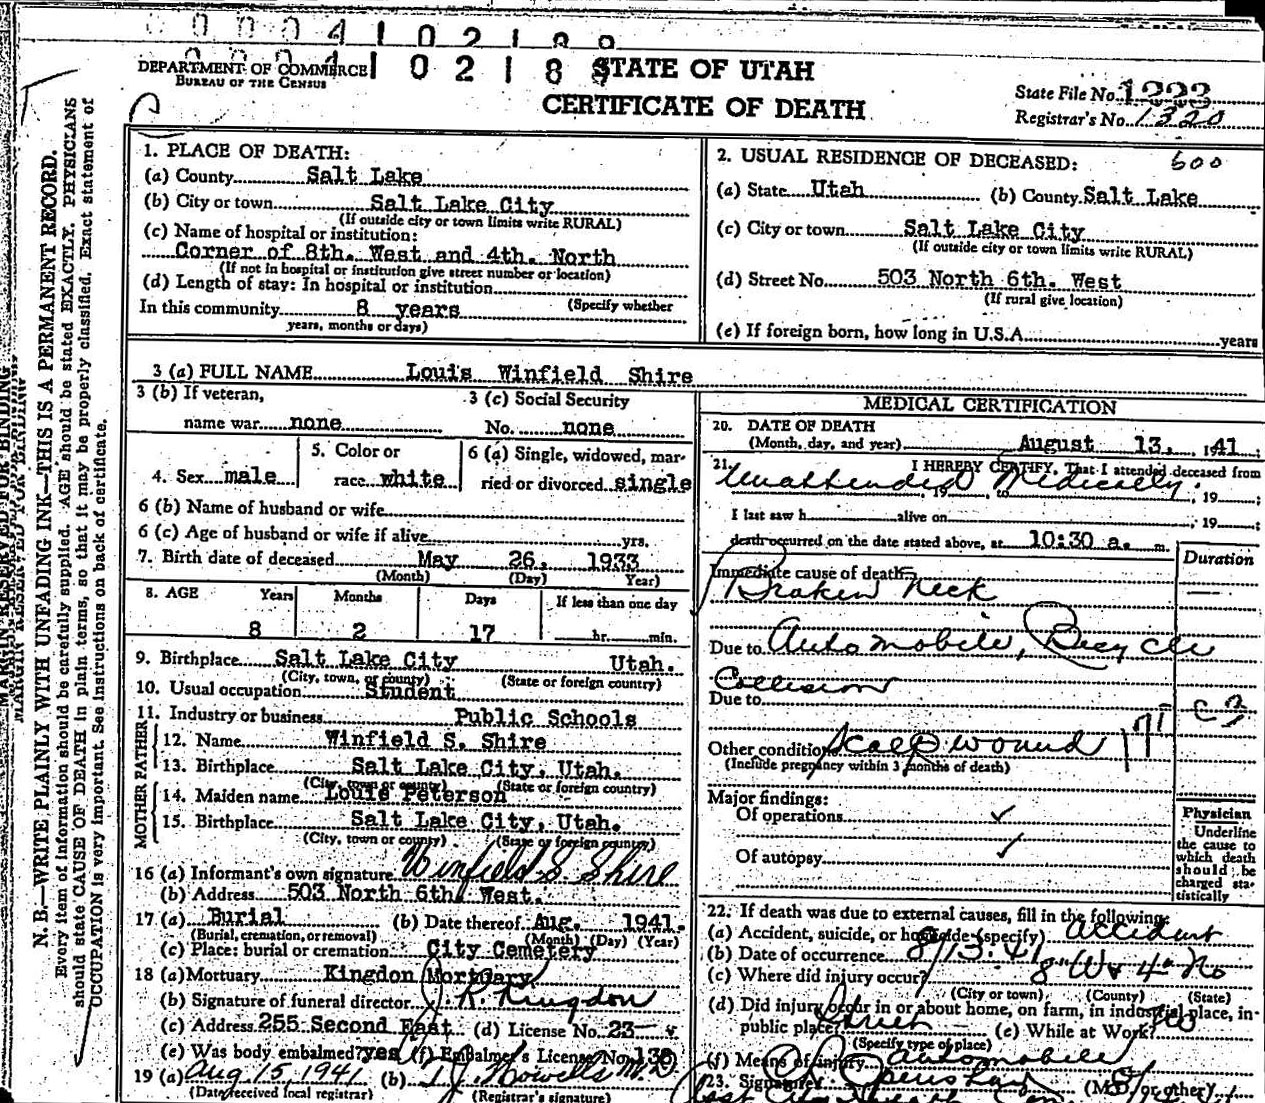 0004102189
DEPARTMENT OF COMMERCE
BUREAU OF THE CENSUS
STATE OF UTAH
CERTIFICATE OF DEATH
State File No. 1223
Registrar's No. 1320
MARGIN RESERVED FOR BINDING
N. B.—WRITE PLAINLY WITH UNFADING INK—THIS IS A PERMANENT RECORD.
Every item of information should be carefully supplied. AGE should be stated EXACTLY. PHYSICIANS
should state CAUSE OF DEATH in plain terms, so that it may be properly classified. Exact statement of
OCCUPATION is very important. See instructions on back of certificate.
1. PLACE OF DEATH:
(a) County Salt Lake
(b) City or town Salt Lake City
(If outside city or town limits write RURAL)
(c) Name of hospital or institution:
Corner of 8th. West and 4th. North
(If not in hospital or institution give street number or location)
(d) Length of stay: In hospital or institution
(Specify whether
In this community 8 years
years, months or days)
2. USUAL RESIDENCE OF DECEASED: 600
(a) State Utah (b) County Salt Lake
(c) City or town Salt Lake City
(If outside city or town limits write RURAL)
(d) Street No. 503 North 6th. West
(If rural give location)
(e) If foreign born, how long in U.S.A. years
3 (a) FULL NAME Louis Winfield Shire
3 (b) If veteran,
name war none
3 (c) Social Security
No. none
4. Sex male
5. Color or
race white
6 (a) Single, widowed, mar-
ried or divorced single
6 (b) Name of husband or wife
6 (c) Age of husband or wife if alive yrs.
7. Birth date of deceased May 26, 1933
(Month) (Day) Year)
8. AGE Years Months Days If less than one day
8 2 17 hr. min.
9. Birthplace Salt Lake City Utah.
(City, town, or county) (State or foreign country)
10. Usual occupation Student
11. Industry or business Public Schools
FATHER
12. Name Winfield S. Shire
13. Birthplace Salt Lake City, Utah.
(City, town or county) (State or foreign country)
MOTHER
14. Maiden name Louie Peterson
15. Birthplace Salt Lake City, Utah.
(City, town or county) (State or foreign country)
16 (a) Informant's own signature Winfield S. Shire
(b) Address 503 North 6th. West.
17 (a) Burial (b) Date thereof Aug. 1941.
(Burial, cremation, or removal) (Month) (Day) (Year)
(c) Place: burial or cremation City Cemetery
18 (a) Mortuary Kingdon Mortuary
(b) Signature of funeral director J. R. Kingdon
(c) Address 255 Second East (d) License No. 23
(e) Was body embalmed? yes (f) Embalmer's License No. 138
19 (a) Aug 15, 1941 (b) T. J. Howells M.D.
(Date received local registrar) (Registrar's signature)
MEDICAL CERTIFICATION
20. DATE OF DEATH
(Month, day, and year) August 13, 1941
21. I HEREBY CERTIFY, That I attended deceased from
Unattended Medically. , 19 , to , 19 ;
I last saw h alive on , 19 ;
death occurred on the date stated above, at 10:30 a. m.
Duration
Immediate cause of death
Broken neck
Due to Automobile, Bicycle
Collision
Due to
Other conditions Scalp wound
(Include pregnancy within 3 months of death)
Major findings:
Of operations
Of autopsy
Physician
Underline
the cause to
which death
should be
charged sta-
tistically
22. If death was due to external causes, fill in the following:
(a) Accident, suicide, or homicide (specify) accident
(b) Date of occurrence 8/13.41
(c) Where did injury occur? 8" W & 4" No
(City or town) (County) (State)
(d) Did injury occur in or about home, on farm, in industrial place, in
public place? Street (e) While at Work? no
(Specify type of place)
(f) Means of injury automobile
23. Signature (M.D. or other)